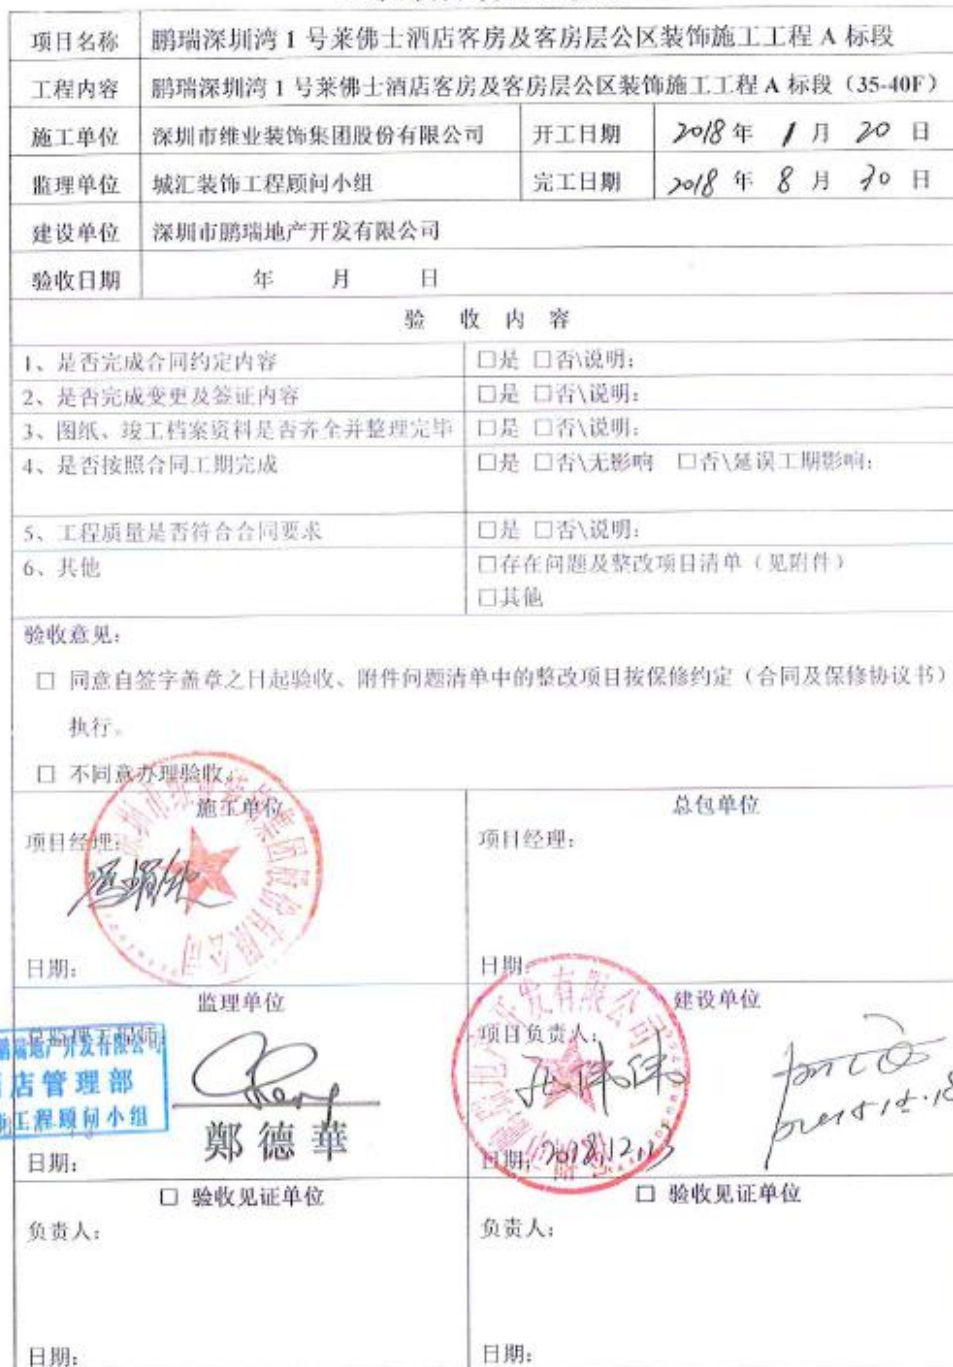 项目名称 鹏瑞深圳湾 1 号莱佛士酒店客房及客房层公区装饰施工工程 A 标段
工程内容 鹏瑞深圳湾 1 号莱佛士酒店客房及客房层公区装饰施工工程 A 标段（35-40F）
施工单位 深圳市维业装饰集团股份有限公司 开工日期 2018 年 1 月 20 日
监理单位 城汇装饰工程顾问小组 完工日期 2018 年 8 月 30 日
建设单位 深圳市鹏瑞地产开发有限公司
验收日期 年 月 日
验 收 内 容
1、是否完成合同约定内容 □是 □否\说明：
2、是否完成变更及签证内容 □是 □否\说明：
3、图纸、竣工档案资料是否齐全并整理完毕 □是 □否\说明：
4、是否按照合同工期完成 □是 □否\无影响 □否\延误工期影响：
5、工程质量是否符合合同要求 □是 □否\说明：
6、其他 □存在问题及整改项目清单（见附件）
□其他
验收意见：
□ 同意自签字盖章之日起验收、附件问题清单中的整改项目按保修约定（合同及保修协议书）
执行。
□ 不同意办理验收。
施工单位 总包单位
项目经理： 项目经理：
日期： 日期：
监理单位 建设单位
总监理工程师： 项目负责人：
鹏瑞地产开发有限公司
店管理部
工程顾问小组
鄭德華
孔伟伟
日期： 日期：2018.12.13
□ 验收见证单位 □ 验收见证单位
负责人： 负责人：
日期： 日期：